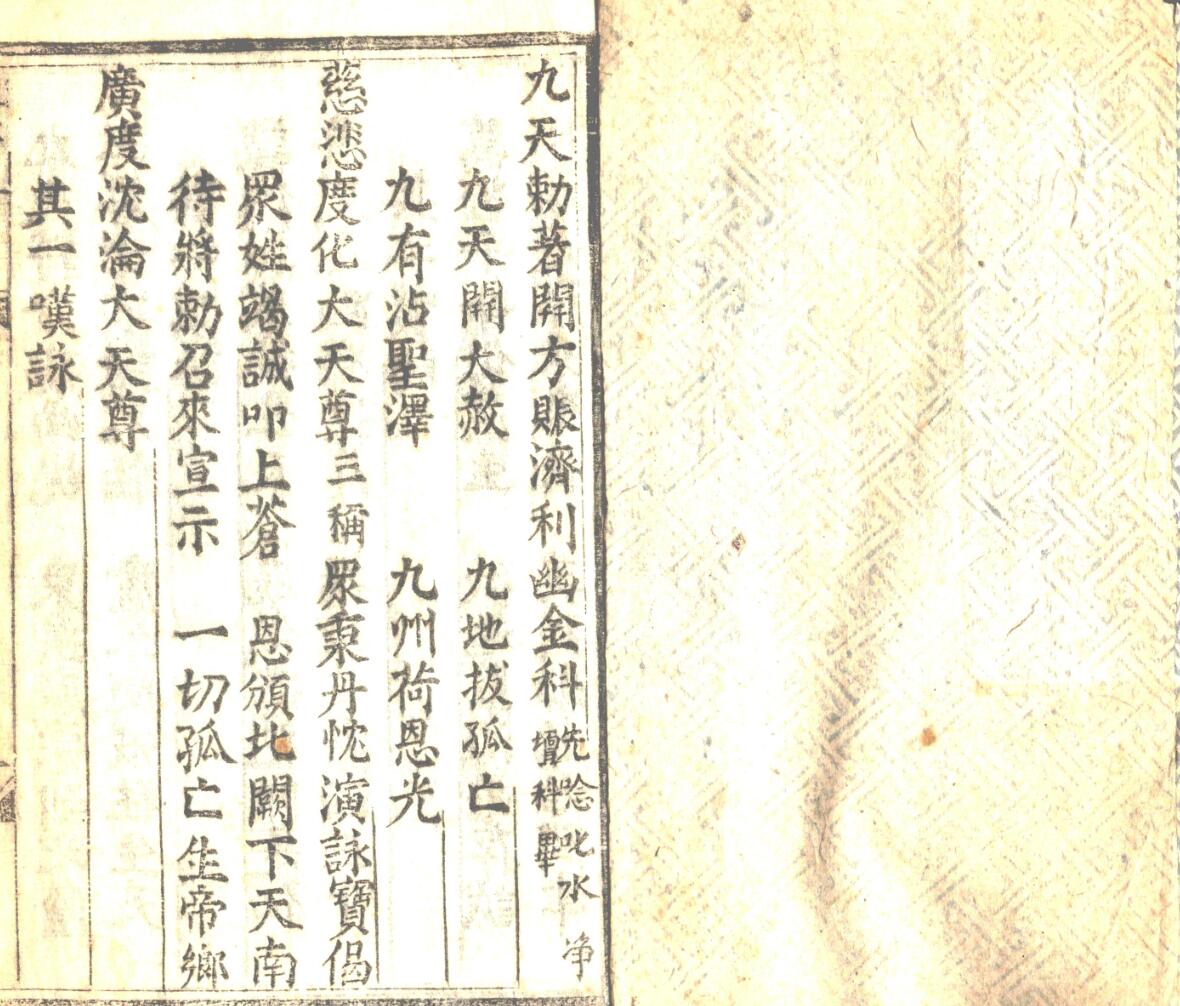 九天勅著開方賑濟利幽金科先唸叱水淨壇科畢
九天開大赦　九地拔孤亡
九有沾聖澤　九州荷恩光
慈悲度化大天尊三稱眾秉丹忱演詠寶偈
眾姓竭誠叩上蒼　恩頒北闕下天南
待將勅召來宣示　一切孤亡生帝鄉
廣度沈淪大天尊
其一嘆詠